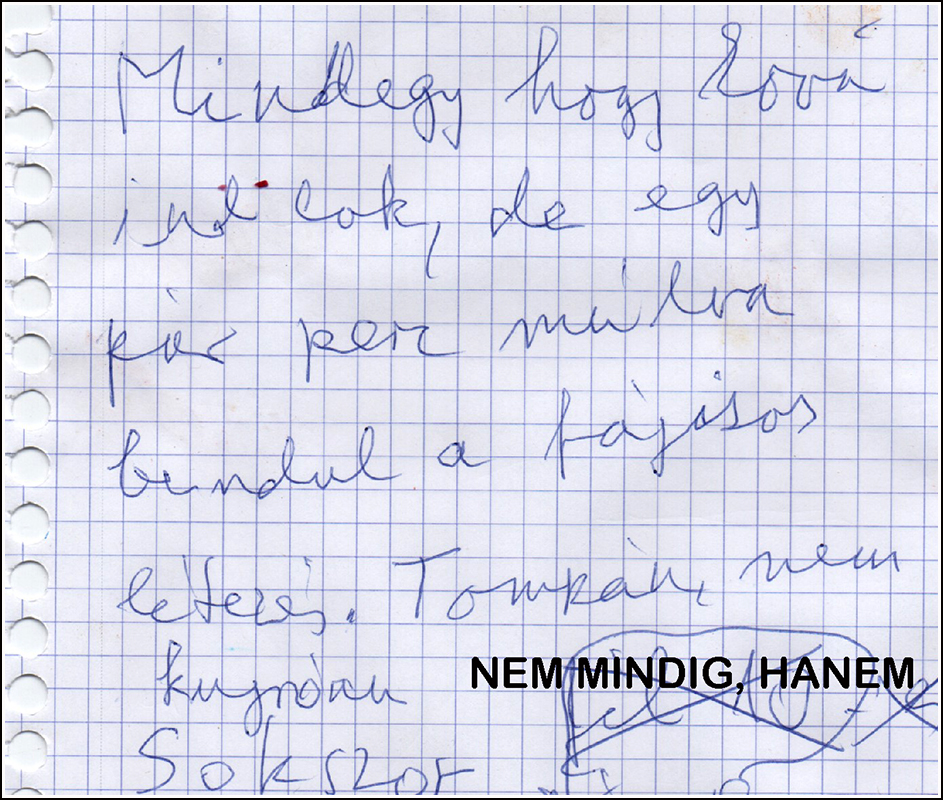 Mindegy hogy hová
indulok, de egy
pár perc múlva
beindul a fájásos
létezés. Tompán, nem
NEM MINDIG, HANEM
Sokszor